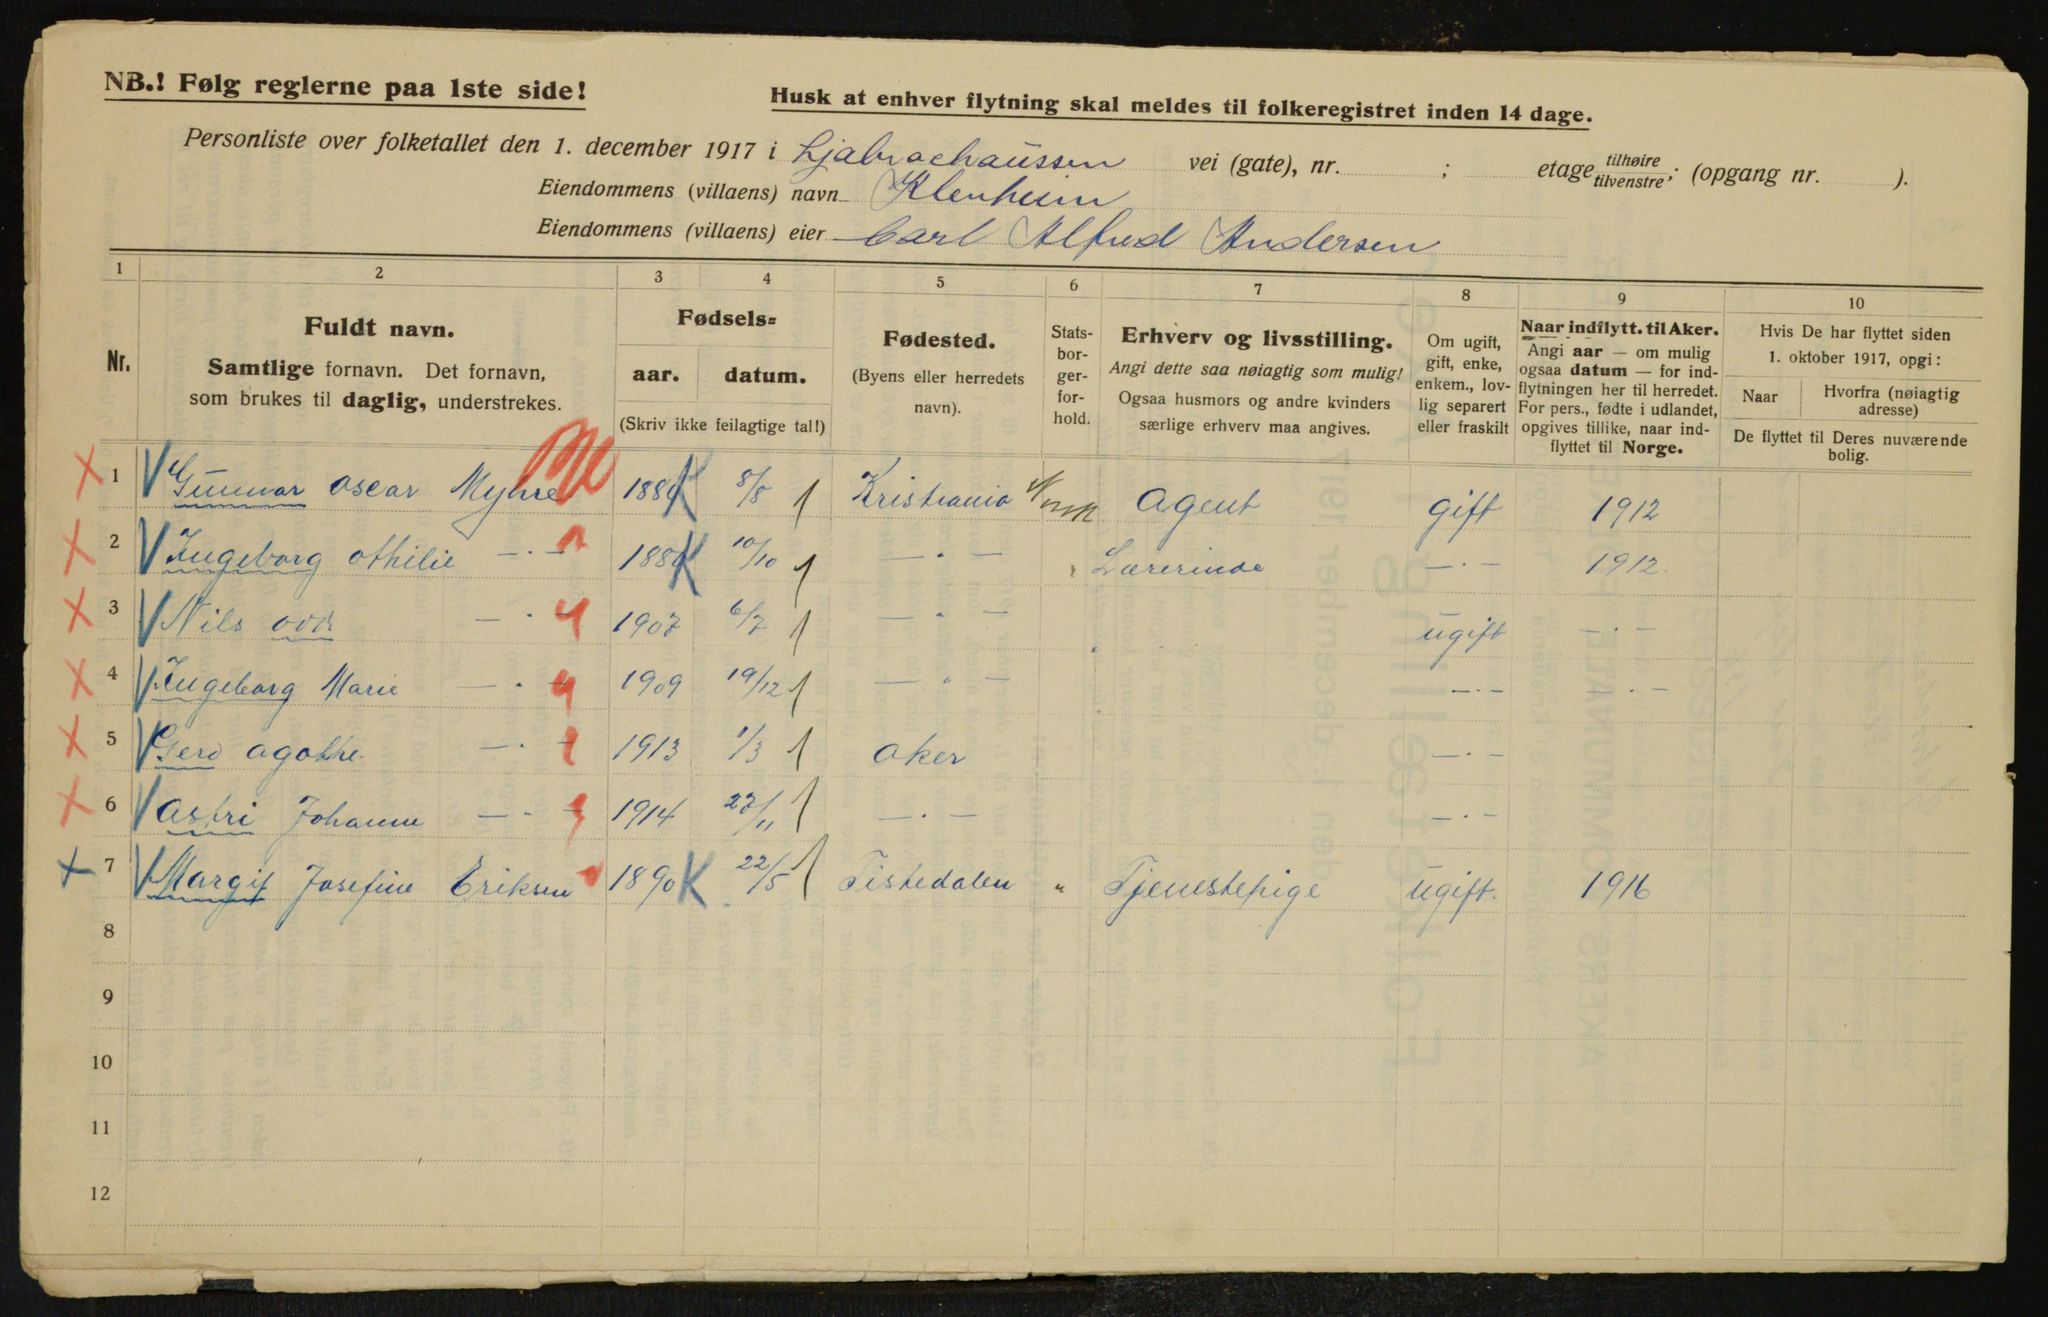 NB.! Følg reglerne paa 1ste side!
Husk at enhver flytning skal meldes til folkeregistret inden 14 dage.
Personliste over folketallet den 1. december 1917 i Ljabrochaussen vei (gate), nr. ; etage tilhøire/tilvenstre; (opgang nr. ).
Eiendommens (villaens) navn Klenheim
Eiendommens (villaens) eier Carl Alfred Andersen
1 2 3 4 5 6 7 8 9 10
Nr.
Fuldt navn.
Samtlige fornavn. Det fornavn,
som brukes til daglig, understrekes.
Fødsels=
aar. datum.
(Skriv ikke feilagtige tal!)
Fødested.
(Byens eller herredets
navn).
Stats-
bor-
ger-
for-
hold.
Erhverv og livsstilling.
Angi dette saa nøiagtig som mulig!
Ogsaa husmors og andre kvinders
særlige erhverv maa angives.
Om ugift,
gift, enke,
enkem., lov-
lig separert
eller fraskilt
Naar indflytt. til Aker.
Angi aar — om mulig
ogsaa datum — for ind-
flytningen her til herredet.
For pers., fødte i udlandet,
opgives tillike, naar ind-
flyttet til Norge.
Hvis De har flyttet siden
1. oktober 1917, opgi:
Naar
Hvorfra (nøiagtig
adresse)
De flyttet til Deres nuværende
bolig.
1 Gunnar Oscar Myhre 188 K 8/8 Kristiania Norsk Agent gift 1912
2 Ingeborg Othilie — . — 188 K 10/10 — " — " Lærerinde — . — 1912.
3 Nils Odd — . — 1907 6/7 — " — ugift — . —
4 Ingeborg Marie — . — 1909 19/12 — " — — . — — . —
5 Gerd Agathe — . — 1913 1/3 Aker — . —
6 Astri Johanne — . — 1914 27/11 — . — — . —
7 Margit Josefine Eriksen 1890 K 22/5 Tistedalen " Tjenestepige ugift. 1916
8
9
10
11
12